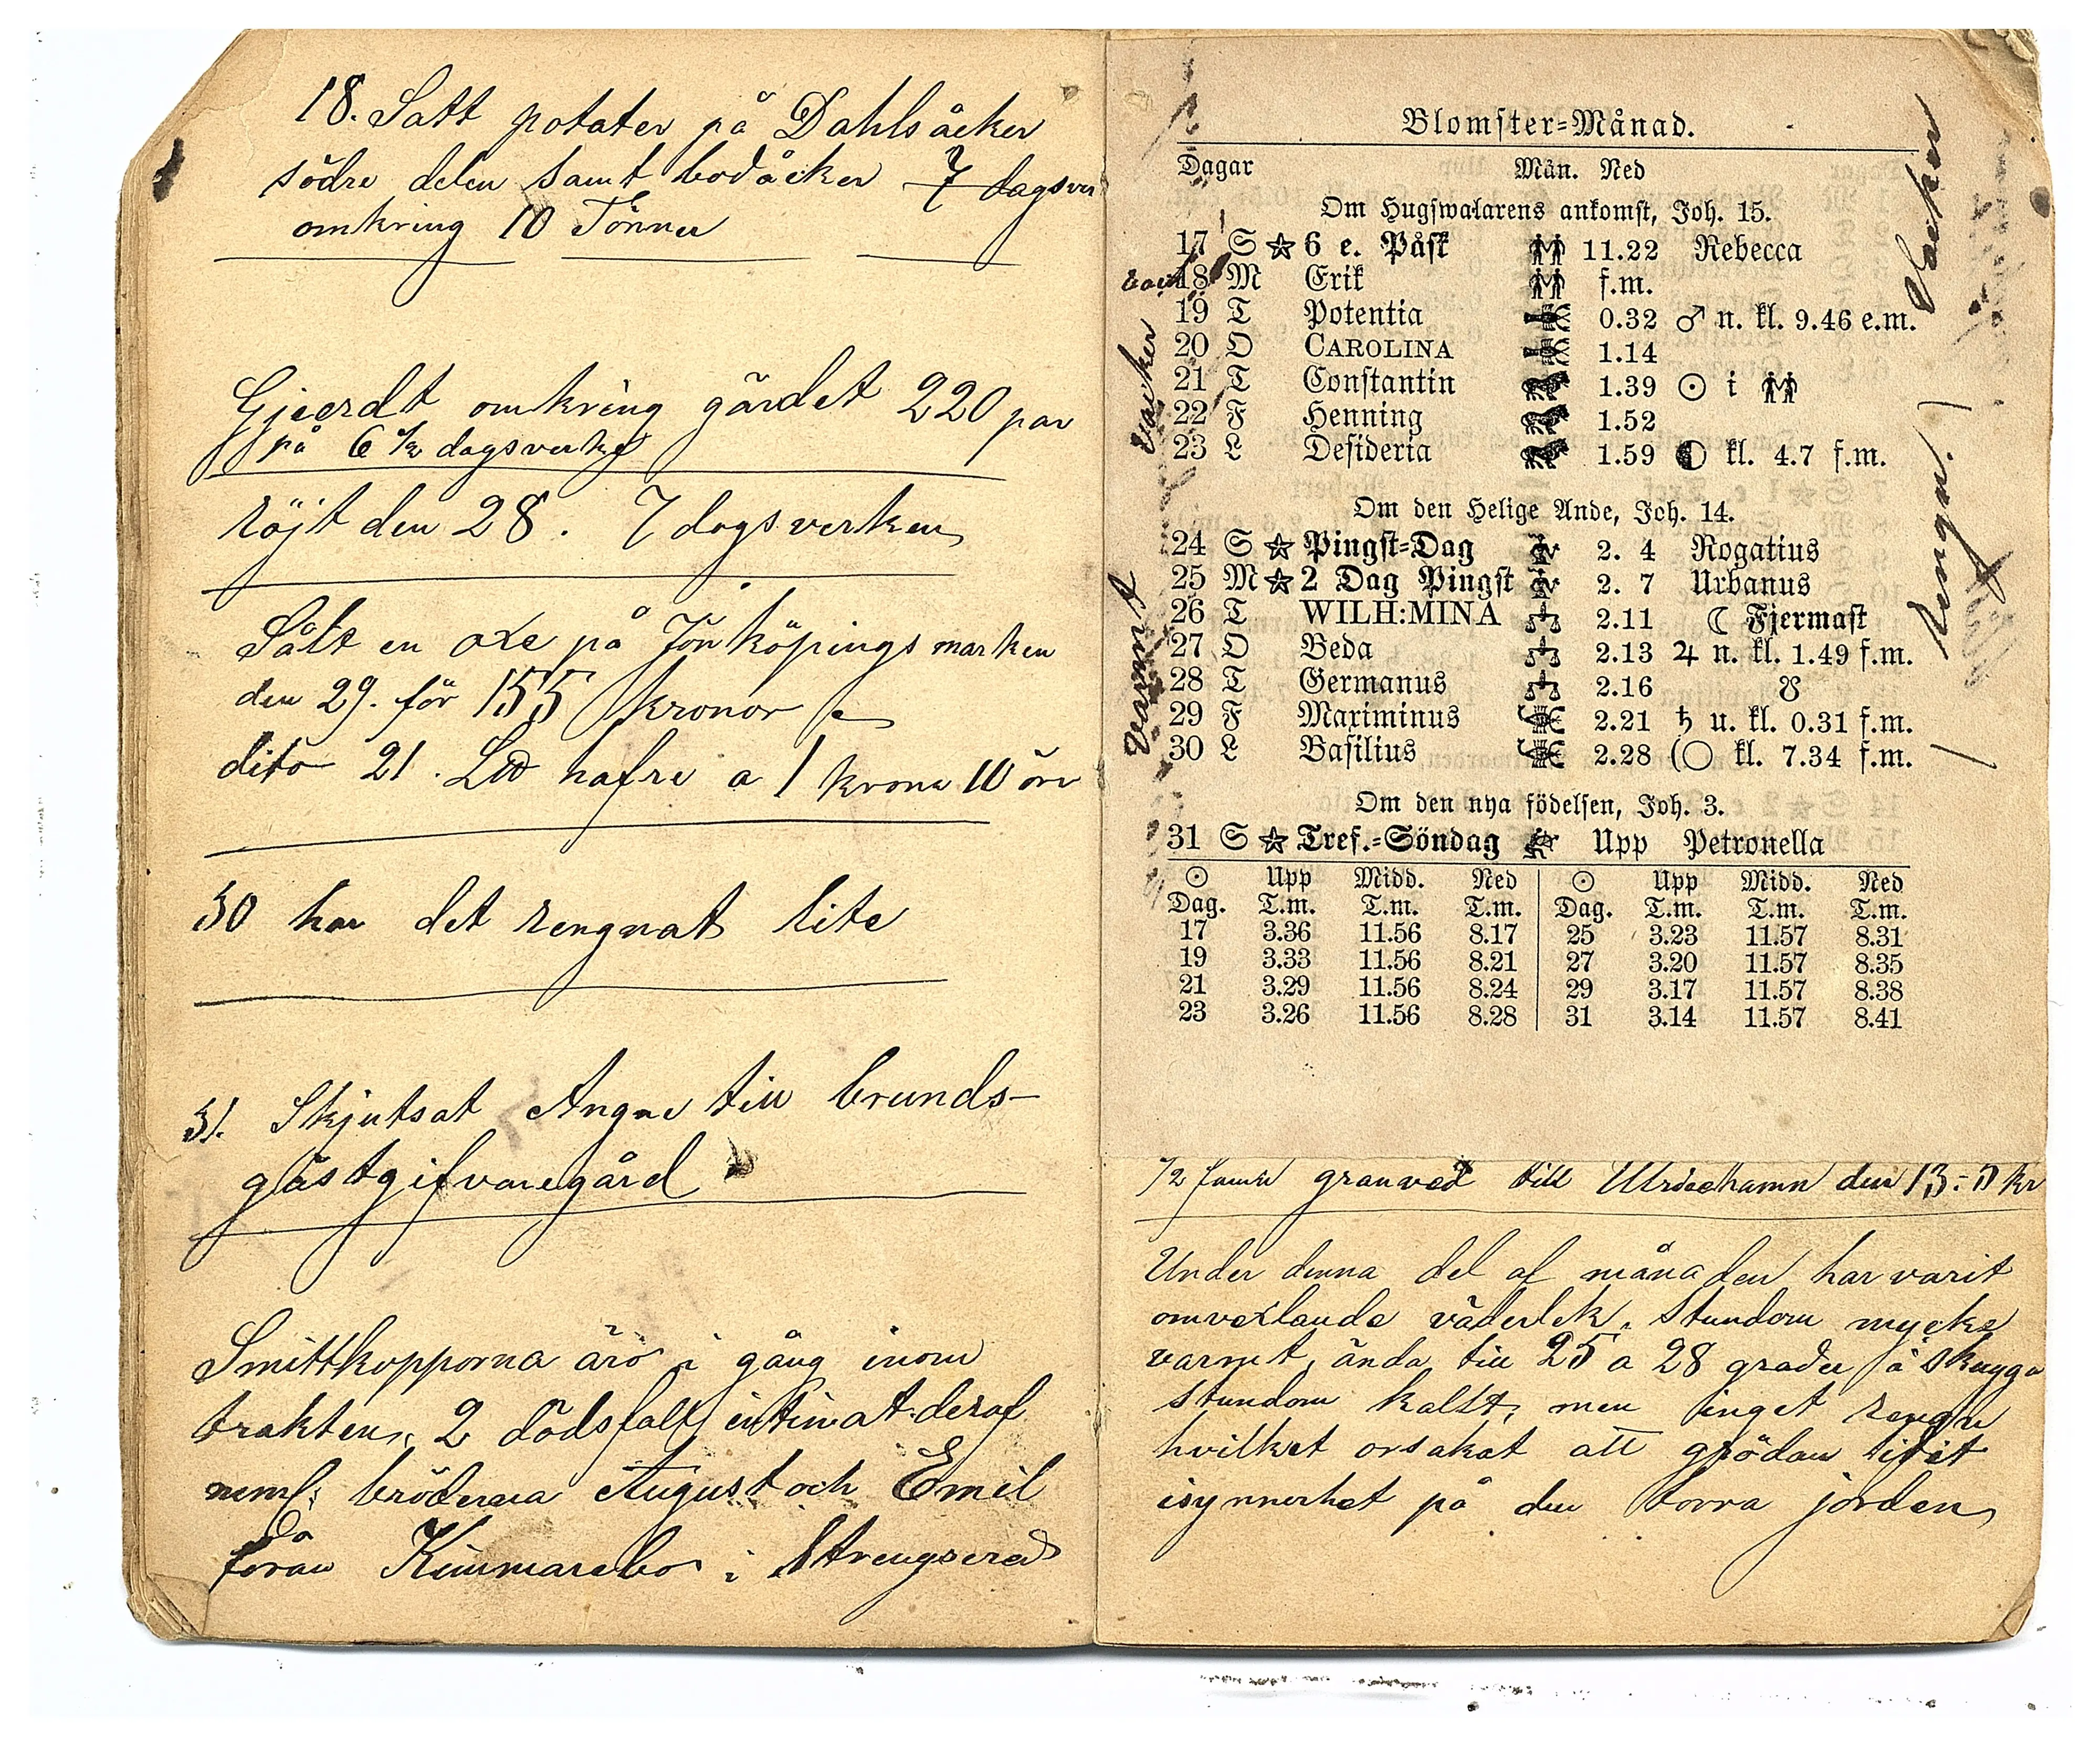 18. Satt potater på Dahlsåcker
södre delen samt bodåcker 7 dagsver
omkring 10 Tönner
Gjerdt omkring gärdet 220 par
på 6 ½ dagsverke
röjt den 28. 7 dagsverken
Sålt en oxe på Jönköpings marken
den 29. för 155 kronor
dito 21. L℔ hafre a 1 krona 10 öre
30 har det rengnat lite
31. Skjutsat Angne till brunds-
gästgifvaregård
Smittkopporna äro i gång inom
trakten, 2 dödsfall intimat deraf
neml. bröderna August och Emil
från Kimmarebo i Strengsered
Blomster-Månad.
Dagar Mån. Ned
Om Hugswalarens ankomst, Joh. 15.
17 S ☆ 6 e. Påsk 11.22 Rebecca
18 M Erik f.m.
19 T Potentia 0.32 ♂ n. kl. 9.46 e.m.
20 O CAROLINA 1.14
21 T Constantin 1.39 ☉ i
22 F Henning 1.52
23 L Desideria 1.59 kl. 4.7 f.m.
Om den Helige Ande, Joh. 14.
24 S ☆ Pingst-Dag 2. 4 Rogatius
25 M ☆ 2 Dag Pingst 2. 7 Urbanus
26 T WILH:MINA 2.11 ☾ Fjermast
27 O Beda 2.13 ♃ n. kl. 1.49 f.m.
28 T Germanus 2.16 ☋
29 F Maximinus 2.21 ♄ u. kl. 0.31 f.m.
30 L Basilius 2.28 (○ kl. 7.34 f.m.
Om den nya födelsen, Joh. 3.
31 S ☆ Tref.-Söndag Upp Petronella
☉ Upp Midd. Ned ☉ Upp Midd. Ned
Dag. T.m. T.m. T.m. Dag. T.m. T.m. T.m.
17 3.36 11.56 8.17 25 3.23 11.57 8.31
19 3.33 11.56 8.21 27 3.20 11.57 8.35
21 3.29 11.56 8.24 29 3.17 11.57 8.38
23 3.26 11.56 8.28 31 3.14 11.57 8.41
vacker
varmt
vacker
rengn.
1/2 famn granved till Ulricehamn den 13 - 5 kr
Under denna del af månaden har varit
omvexlande väderlek, stundom mycke
varmt, ända till 25 a 28 grader i skugga
stundom kallt, men inget rengn
hvilket orsakat att grödan lidit
isynnerhet på den torra jorden